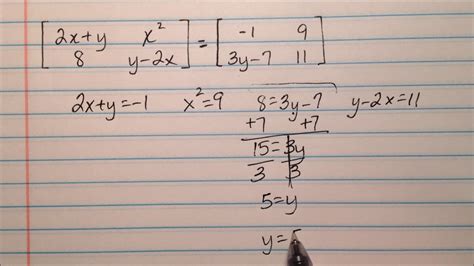 [ 2x+y x² ] = [ -1 9 ]
[ 8 y-2x ] [ 3y-7 11 ]
2x+y=-1 x²=9 8=3y-7 y-2x=11
+7 +7
15=3y
3 3
5=y
y=5